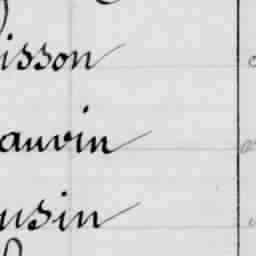 isson
auvin
usin